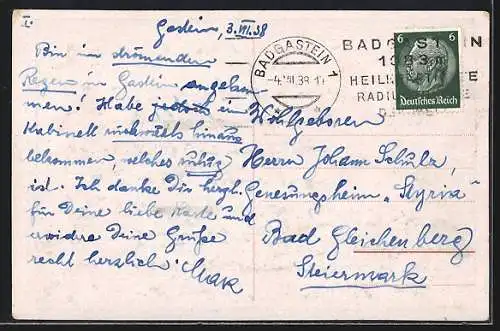 I.
Gastein, 3.VII.38
Bin im strömenden
Regen in Gastein angekom-
men! Habe jedoch ein
Kabinell rückwärts hinaus
bekommen, welches ruhig
ist. Ich danke Dir herzl.
für Deine liebe Karte und
erwidre Deine Grüße
recht herzlich. Max
BADGASTEIN 1
-4.VII.38
BADGASTEIN
HEILT
6 6
Deutsches Reich
Wohlgeboren
Herrn Johann Schulz,
Genesungsheim "Styria"
Bad Gleichenberg
Steiermark